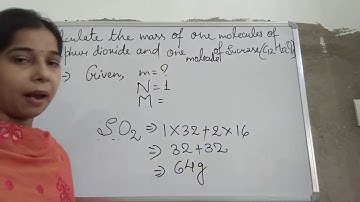 culate the mass of one molecules of
phur dioxide and one molecules of Sucrose(C12H22O11)
⇒ Given, m=?
N=1
M=
SO2 ⇒ 1×32+2×16
⇒ 32+32
⇒ 64g